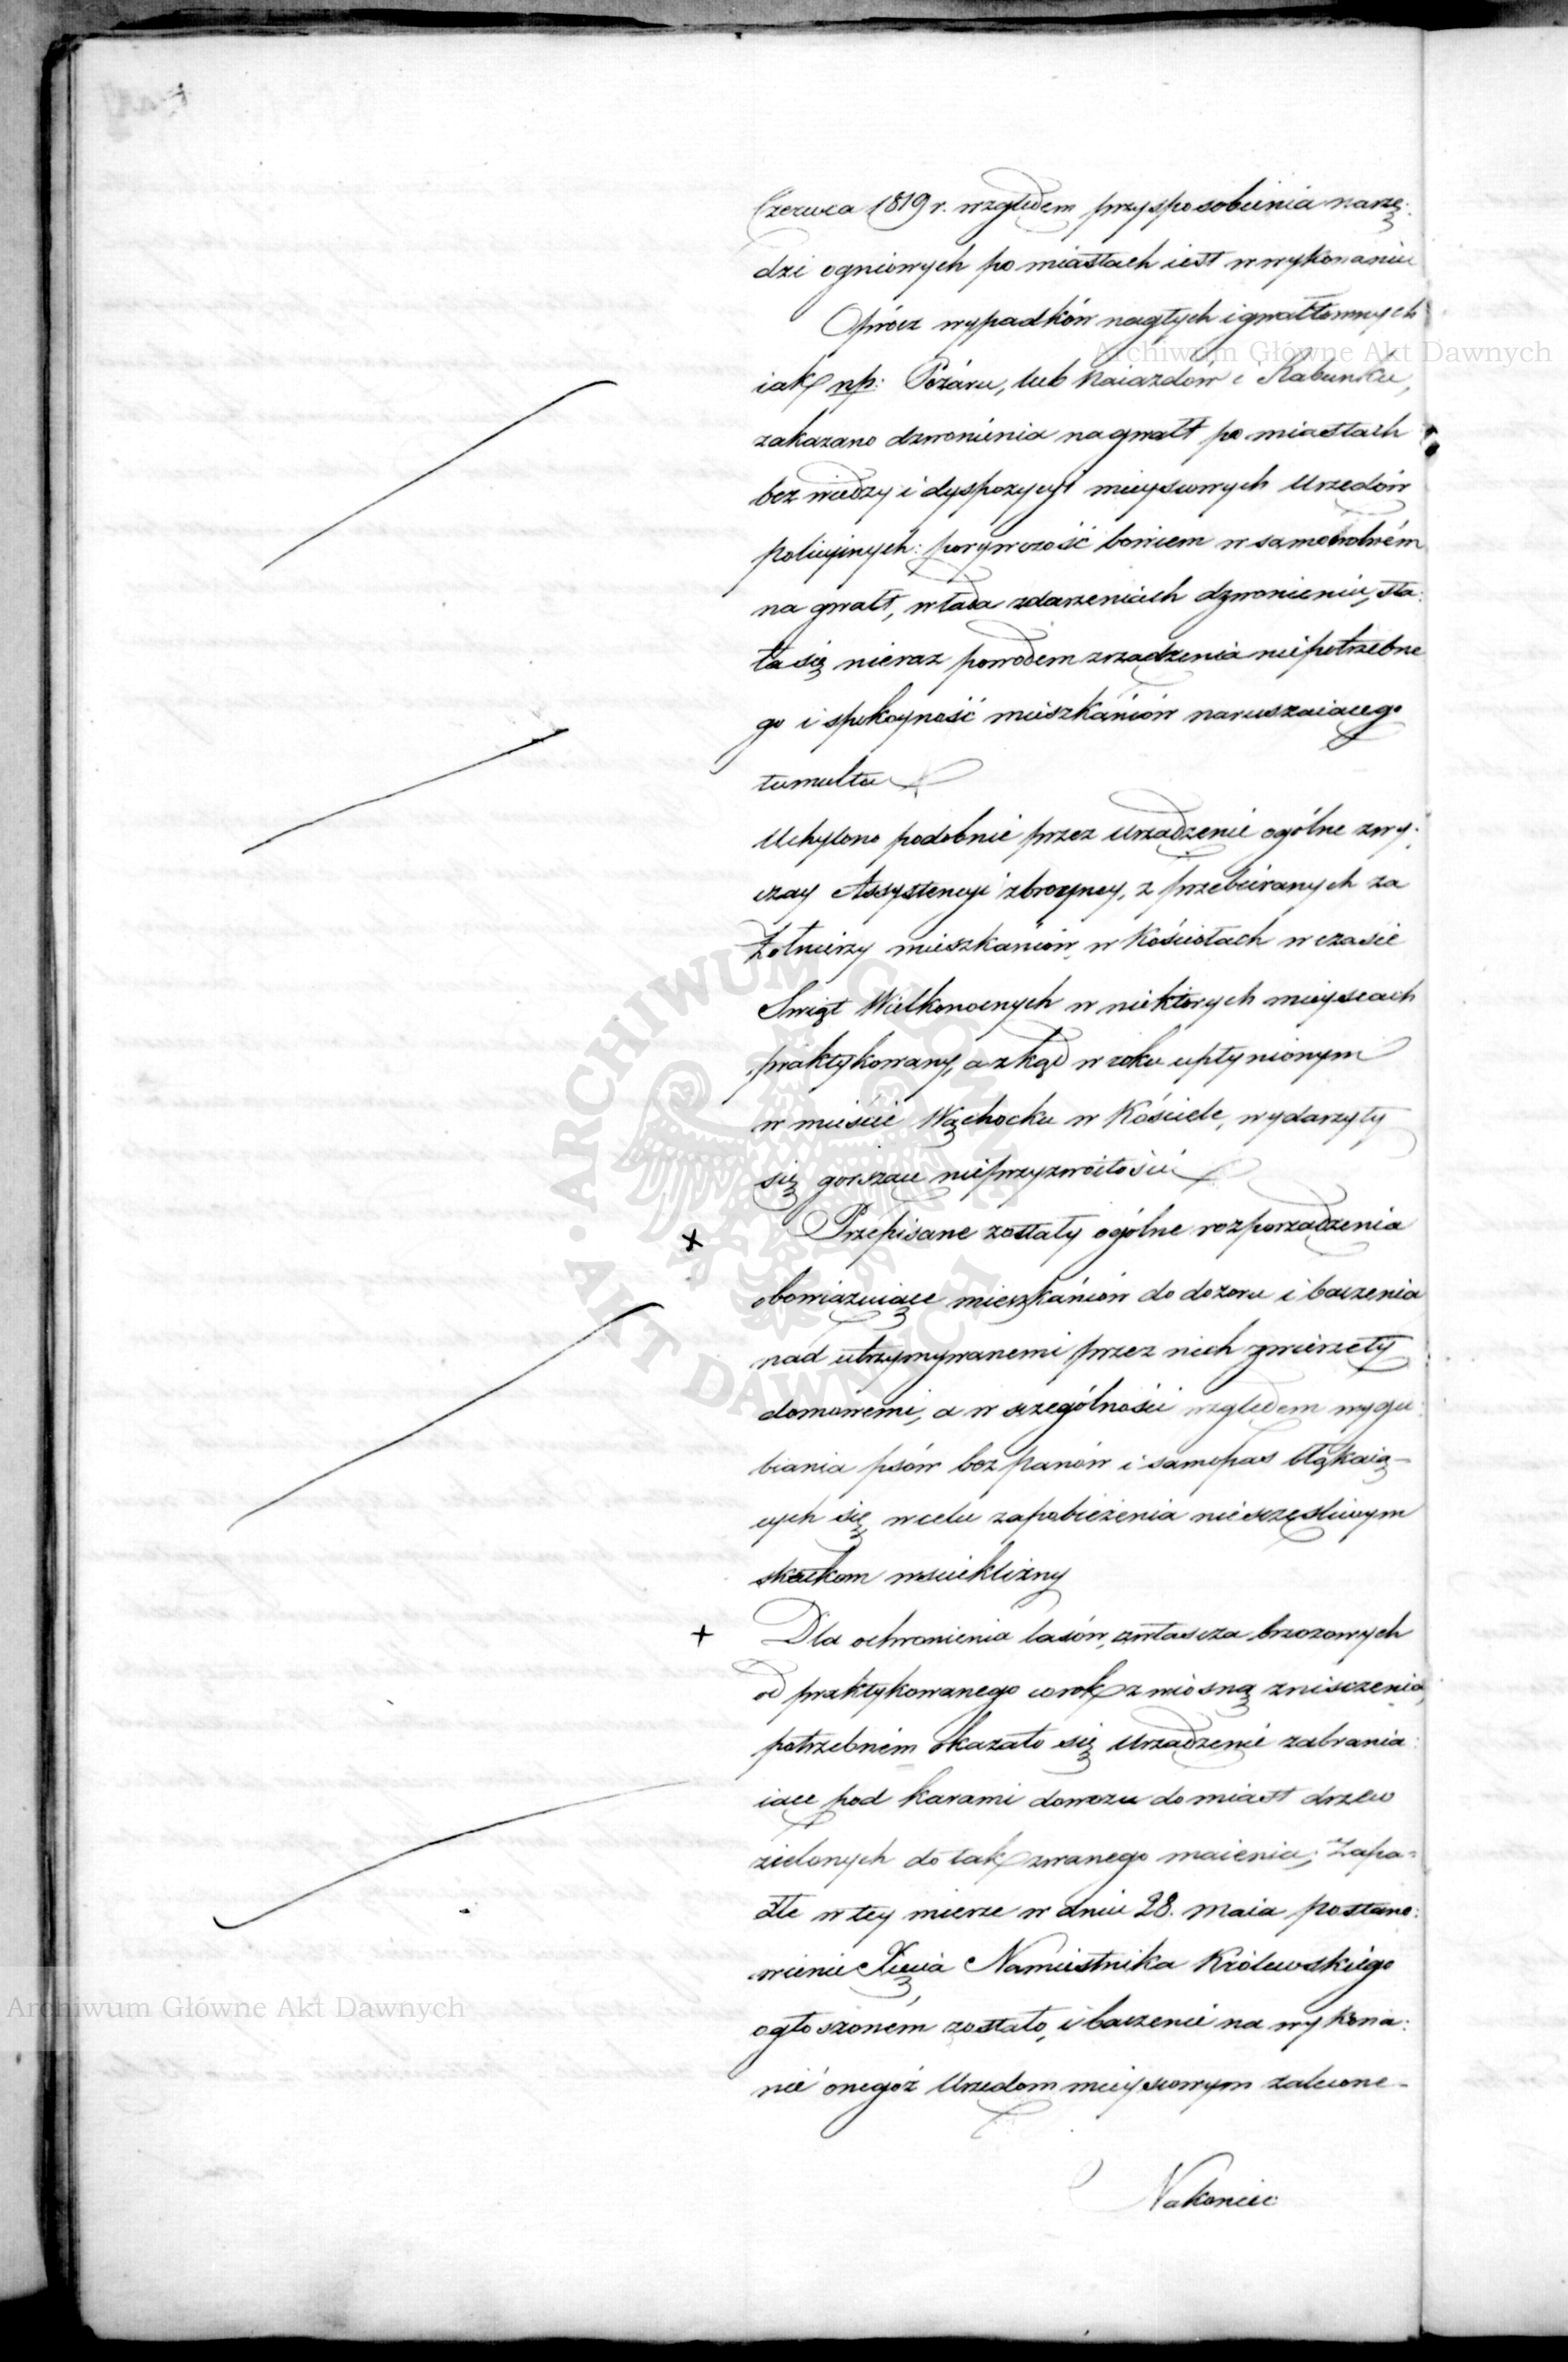 Czerwca 1819 r. względem przysposobienia narzę:
dzi ogniowych po miastach iest w wykonaniu
Oprócz wypadków nagłych i gwałtownych
iak np: Pożaru, lub Naiazdów i Rabunku,
zakazano dzwonienia na gwałt po miastach
bez wiedzy i dyspozycyi mieyscowych Urzędów
policyinych: porywczość bowiem w samowolném
na gwałt, w lada zdarzeniach dzwonieniu, sta:
ła się nieraz powodem zrządzenia niepotrzebne
go i spokoyność mieszkańców naruszaiącego
tumultu
Uchylono podobnie przez urządzenie ogólne zwy:
czay Assystencyi zbroyney, z przebieranych za
Żołnierzy mieszkańców, w Kościołach w czasie
Swiąt Wielkonocnych w niektórych mieyscach
praktykowany, a zkąd w roku upłynionym
w mieście Wąchocku w Kościele, wydarzyły
się gorszące nieprzyzwoitości
Przepisane zostały ogólne rozporządzenia
obowiązuiące mieszkańców do dozoru i baczenia
nad utrzymywanemi przez nich zwierzęty
domowemi, a w szczególności względem wygu
biania psów bez panów i samopas błąkaią-
cych się, w celu zapobieżenia nieszczęśliwym
skutkom wscieklizny
Dla ochronienia lasów, zwłaszcza brzozowych
od praktykowanego corok z wiosną zniszczenia,
potrzebném okazało się urządzenie zabrania:
iące pod karami dowozu do miast drzew
zielonych do tak zwanego maienia; Zapa=
dłe w tey mierze w dniu 28. Maia postano:
wienie Xięcia Namiestnika Królewskiégo
ogłoszoném zostało, i baczenie na wykona:
nie onegoż Urzędom mieyscowym zalecone-
Nakoniec
Archiwum Główne Akt Dawnych
Archiwum Główne Akt Dawnych
· ARCHIWUM GŁÓWNE · AKT DAWNYCH